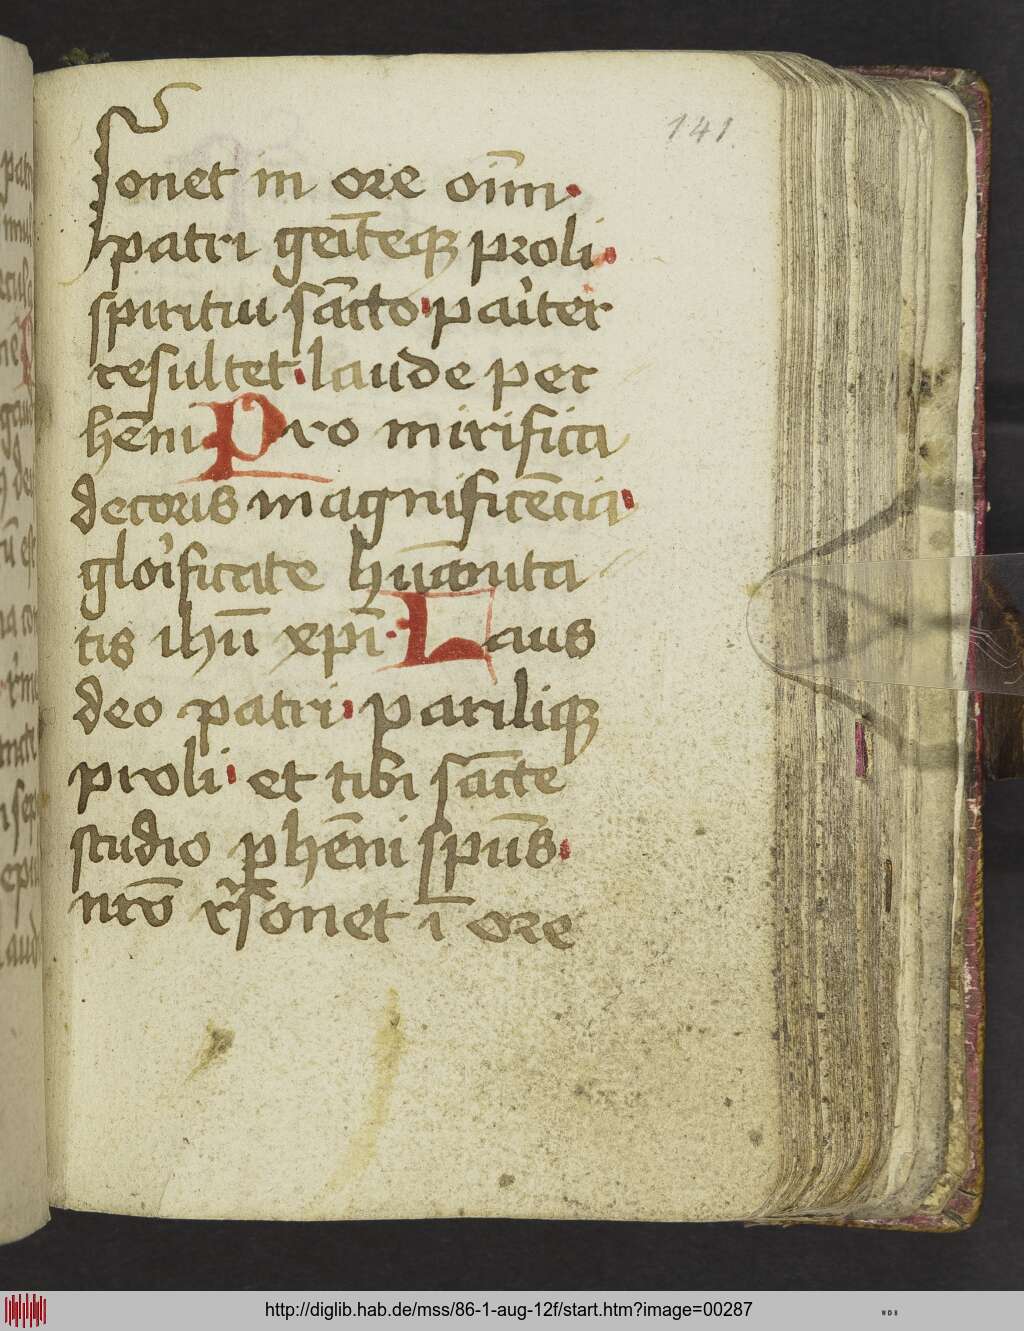 141.
sonet in ore oi̅m.
patri geit̅eqꝫ proli.
spiritui sa̅cto. pai̔ter
resultet. laude per
he̅ni Pro mirifica
decoris magnifice̅cia.
gloi̔ficate hu̅anita
tis ihu̅ xpi̅. Laus
deo patri. pariliqꝫ
proli. et tibi sa̅cte
studio ꝑhe̅ni spu̅s.
nr̅o r̔sonet i̅ ore
http://diglib.hab.de/mss/86-1-aug-12f/start.htm?image=00287